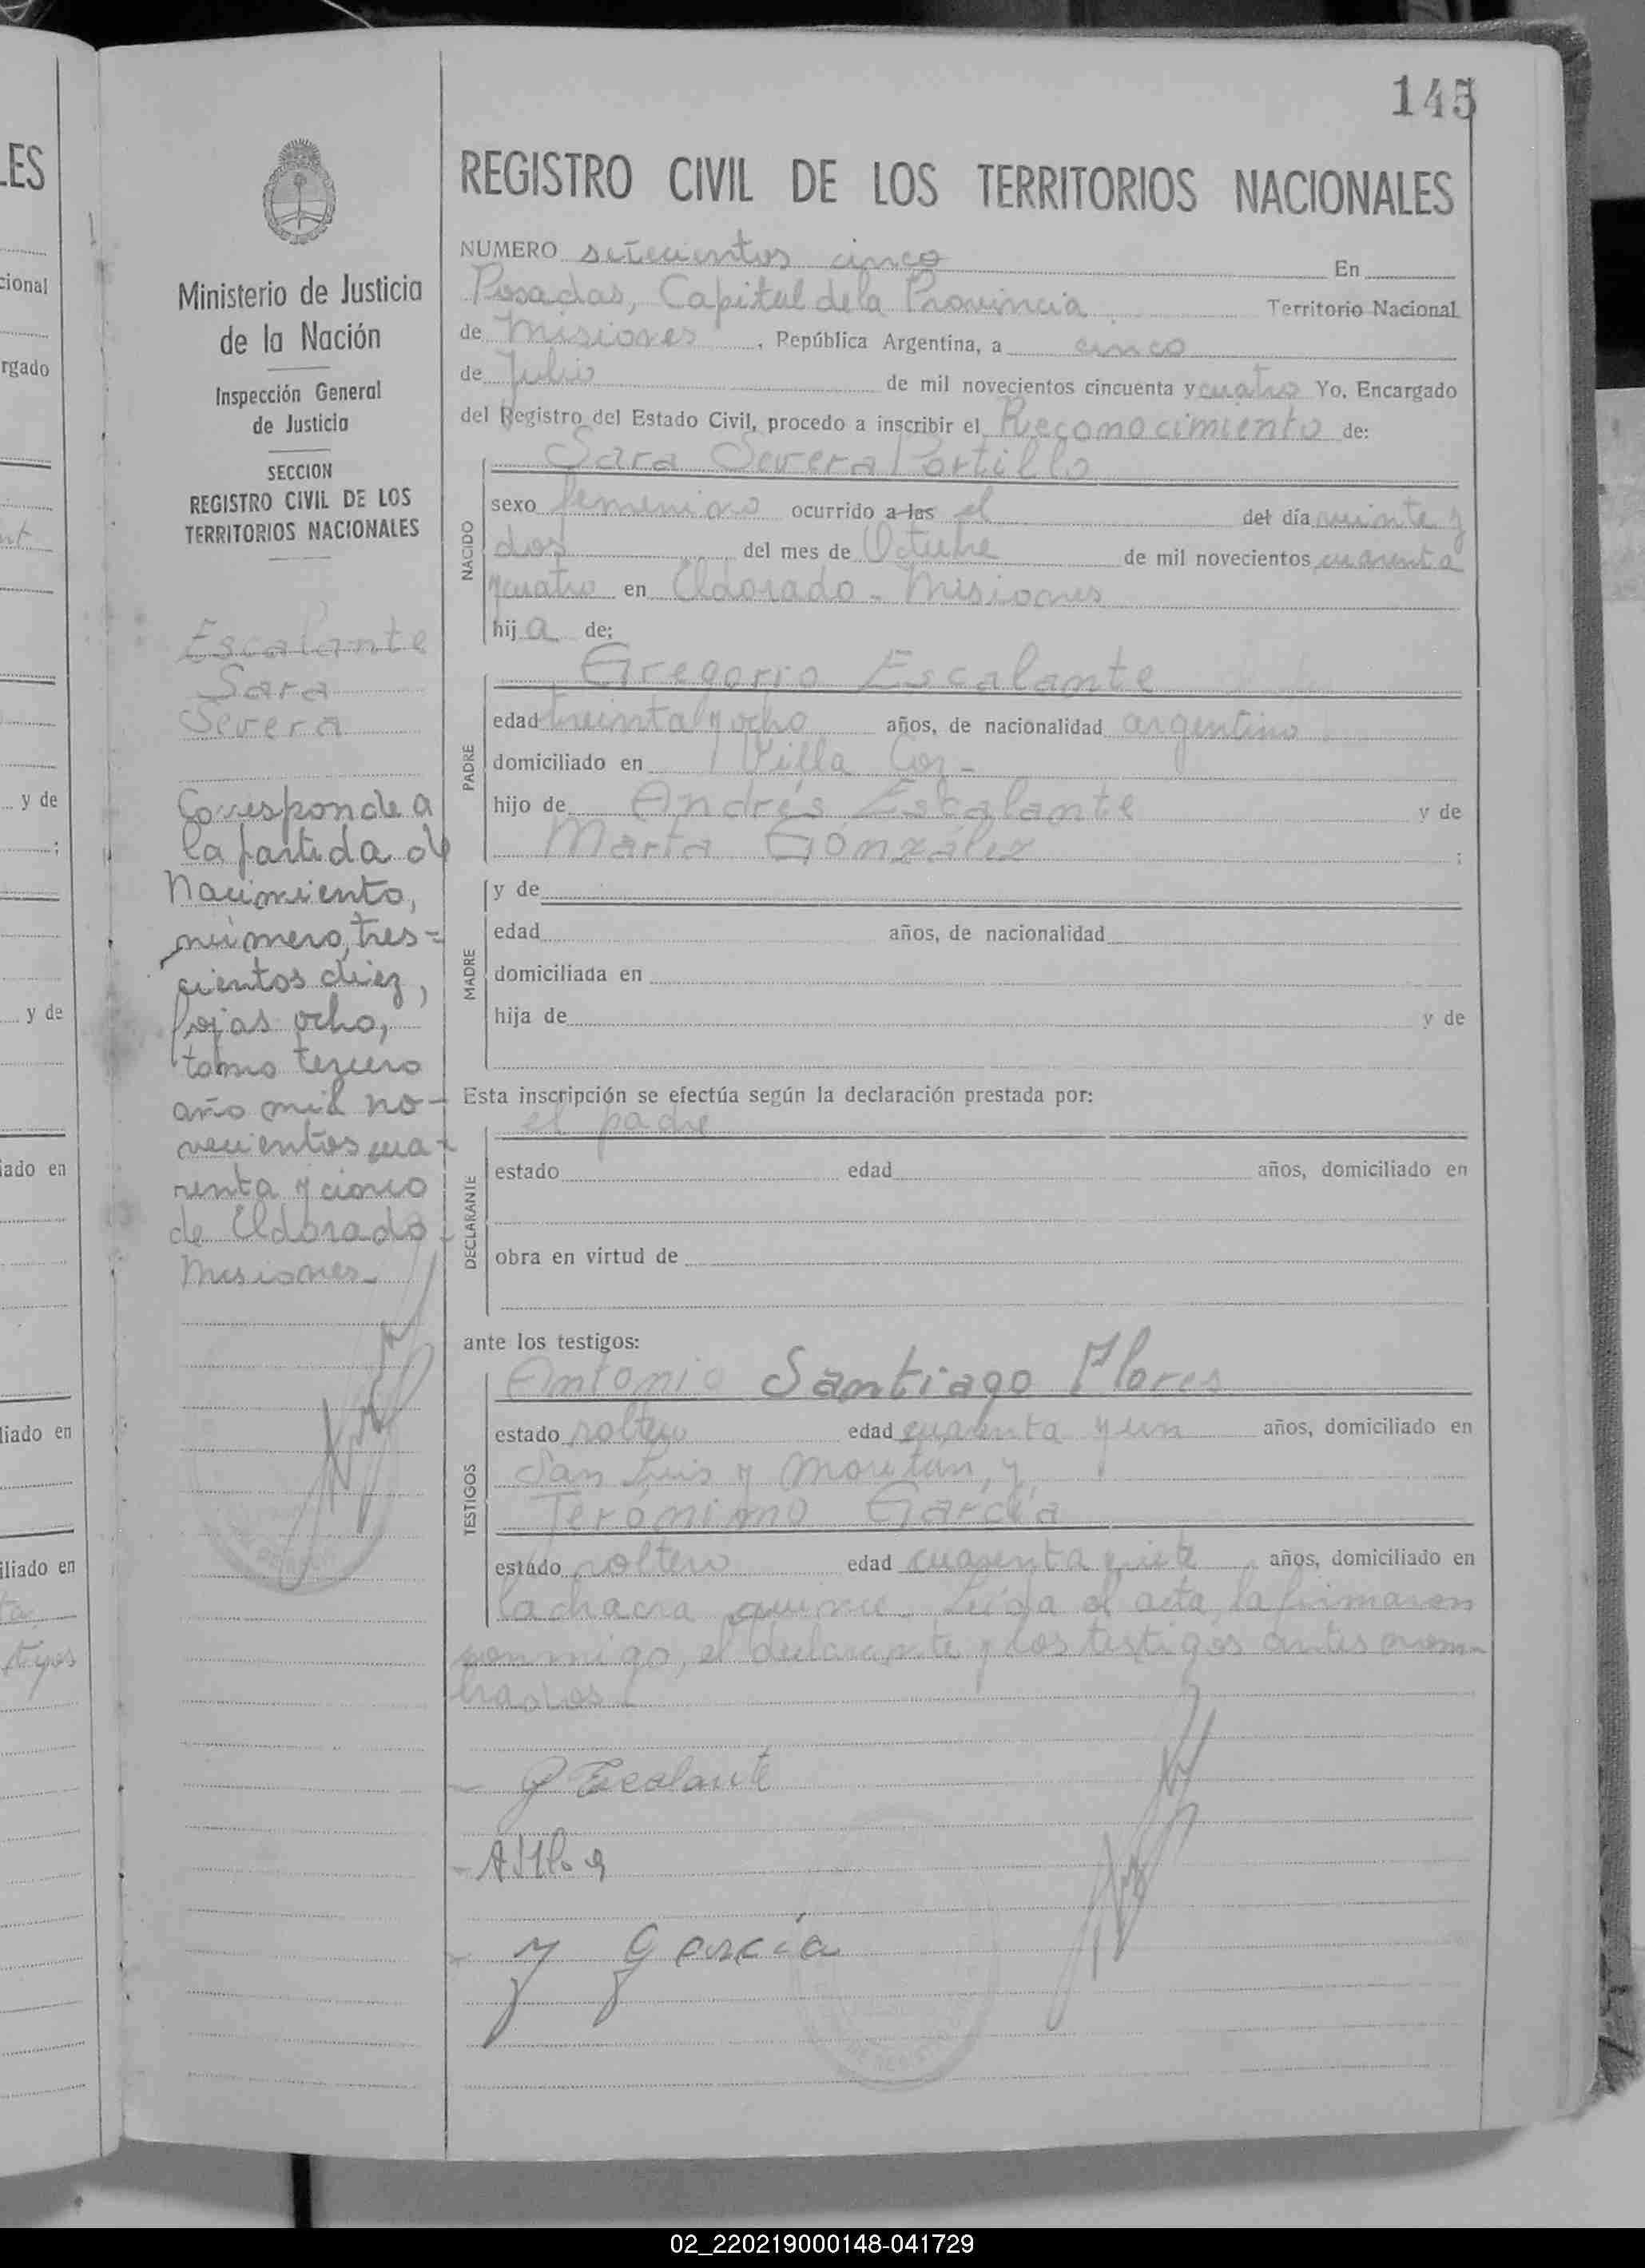 145
REGISTRO CIVIL DE LOS TERRITORIOS NACIONALES
Ministerio de Justicia
de la Nación
Inspección General
de Justicia
SECCION
REGISTRO CIVIL DE LOS
TERRITORIOS NACIONALES
Escalante
Sara
Severa
Corresponde a
la partida de
Nacimiento,
número, tres=
cientos diez,
fojas ocho,
tomo tercero
año mil no-
vecientos cua-
renta y cinco
de Eldorado-
Misiones-
NUMERO setecientos cinco En
Posadas, Capital de la Provincia Territorio Nacional
de Misiones, República Argentina, a cinco
de Julio de mil novecientos cincuenta y cuatro Yo, Encargado
del Registro del Estado Civil, procedo a inscribir el Reconocimiento de:
Sara Severa Portillo
NACIDO
sexo femenino ocurrido a las el del día veinte y
dos del mes de Octubre de mil novecientos cuarenta
y cuatro en Eldorado - Misiones
hija de:
Gregorio Escalante
PADRE
edad treinta y ocho años, de nacionalidad argentino
domiciliado en Villa
hijo de Andrés Escalante y de
Marta González ;
MADRE
y de
edad años, de nacionalidad
domiciliada en
hija de y de
Esta inscripción se efectúa según la declaración prestada por:
el padre
DECLARANTE
estado edad años, domiciliado en
obra en virtud de
ante los testigos:
Antonio Santiago Flores
TESTIGOS
estado soltero edad cuarenta y un años, domiciliado en
San Luis y y
Jerónimo García
estado soltero edad cuarenta siete años, domiciliado en
la chacra quince. Leída el acta, la firmaron
conmigo, el declarante y los testigos antes nom-
brados
G Escalante
J García
ES
cional
rgado
y de
y de
iado en
liado en
iliado en
tigos
02_220219000148-041729